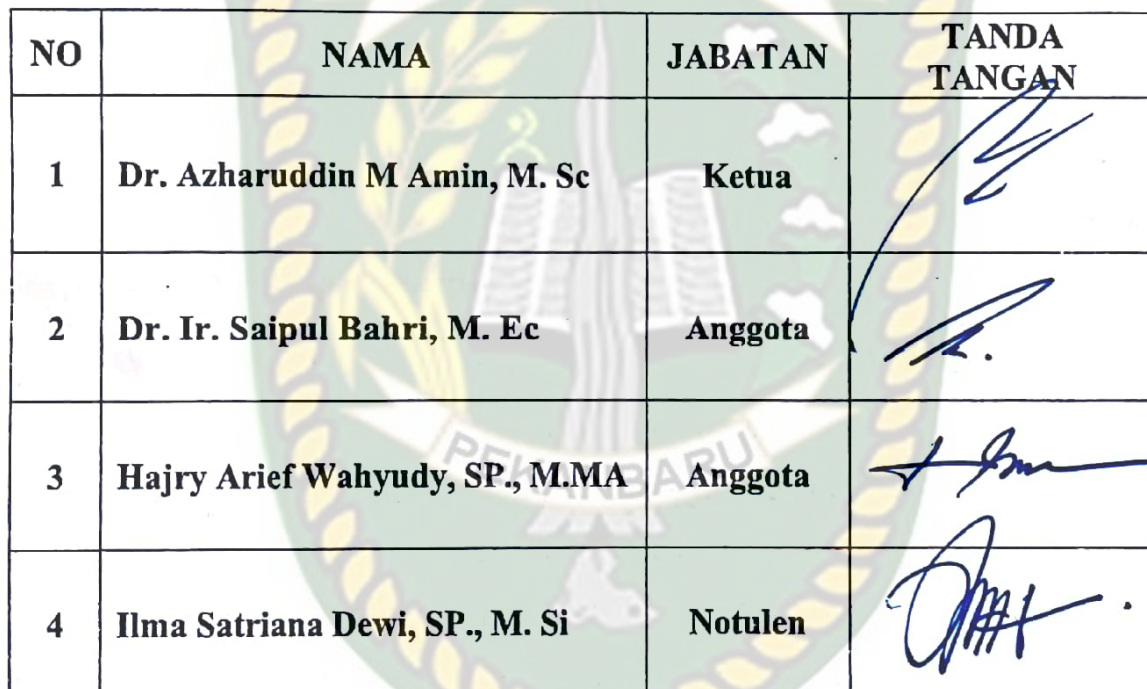 NO NAMA JABATAN TANDA
TANGAN
1 Dr. Azharuddin M Amin, M. Sc Ketua
2 Dr. Ir. Saipul Bahri, M. Ec Anggota
3 Hajry Arief Wahyudy, SP., M.MA Anggota
4 Ilma Satriana Dewi, SP., M. Si Notulen
PEKANBARU